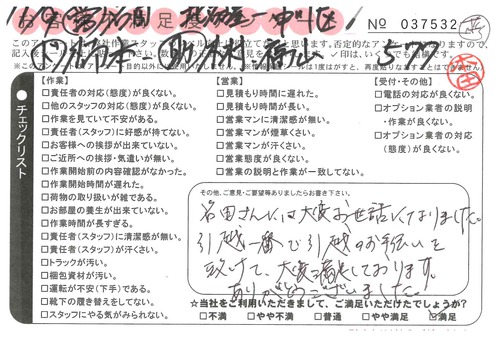 No 037532
【作業】
□責任者の対応(態度)が良くない。
□他のスタッフの対応(態度)が良くない。
□作業を見ていて不安がある。
□責任者(スタッフ)に好感が持てない。
□お客様への挨拶が出来ていない。
□ご近所への挨拶・気遣いが無い。
□作業開始前の内容確認がなかった。
□作業開始時間が遅れた。
□荷物の取り扱いが雑である。
□お部屋の養生が出来ていない。
□作業時間が長すぎる。
□責任者(スタッフ)に清潔感が無い。
□責任者(スタッフ)が汗くさい。
□トラックが汚い。
□梱包資材が汚い。
□運転が不安(下手)である。
□靴下の履き替えをしてない。
□スタッフにやる気がみられない。
チェックリスト
【営業】
□見積もり時間に遅れた。
□見積もり時間が長い。
□営業マンに清潔感が無い。
□営業マンが煙草くさい。
□営業マンが汗くさい。
□営業態度が良くない。
□営業の説明と作業が一致してない。
【受付・その他】
□電話の対応が良くない。
□オプション業者の説明
・作業が良くない。
□オプション業者の対応
(態度)が良くない。
その他、ご意見・ご要望等ありましたらお書き下さい。
名田さんには大変お世話になりました。
引越一番で引越のお手伝いを
致けて、大変満足しております。
ありがとうございました。
★当社をご利用いただきまして、ご満足いただけたでしょうか?
□不満 □やや不満 □普通 □やや満足 □満足